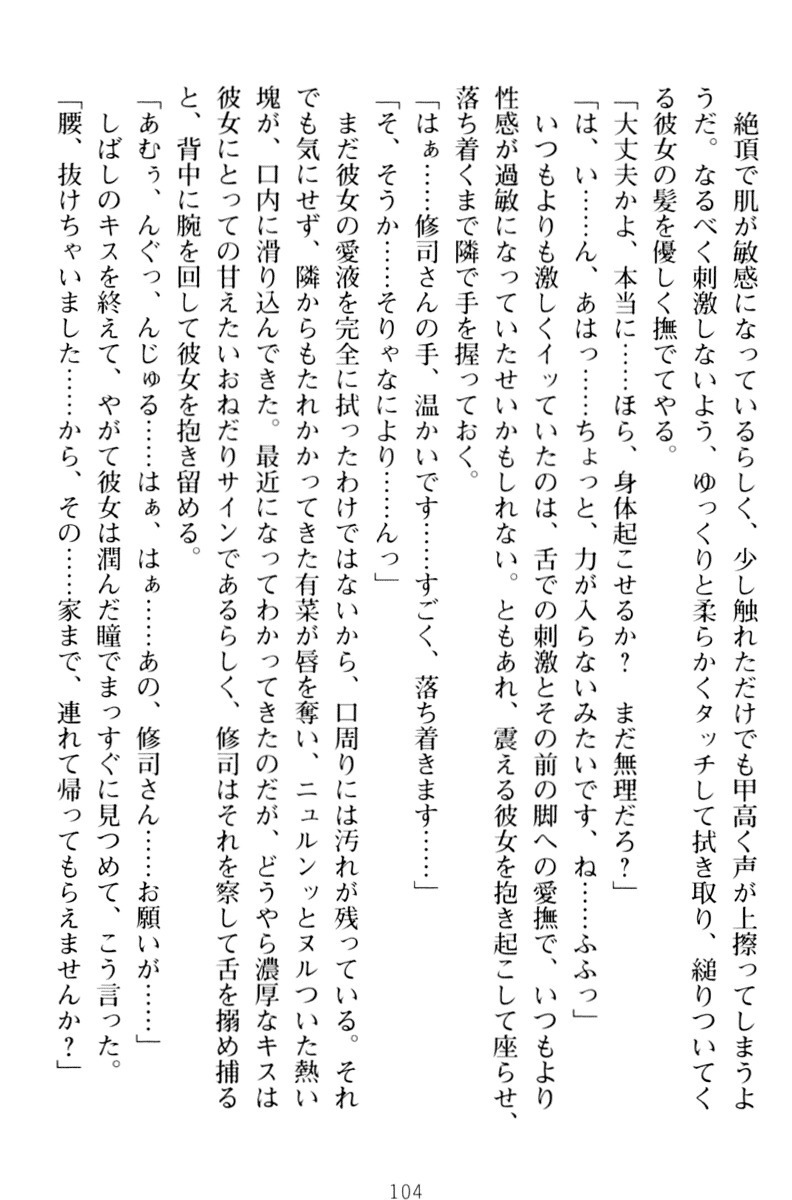 絶頂で肌が敏感になっているらしく、少し触れただけでも甲高く声が上擦ってしまうよ
うだ。なるべく刺激しないよう、ゆっくりと柔らかくタッチして拭き取り、縋りついてく
る彼女の髪を優しく撫でてやる。
「大丈夫かよ、本当に……ほら、身体起こせるか？　まだ無理だろ？」
「は、い……ん、あはっ……ちょっと、力が入らないみたいです、ね……ふふっ」
いつもよりも激しくイッていたのは、舌での刺激とその前の脚への愛撫で、いつもより
性感が過敏になっていたせいかもしれない。ともあれ、震える彼女を抱き起こして座らせ、
落ち着くまで隣で手を握っておく。
「はぁ……修司さんの手、温かいです……すごく、落ち着きます……」
「そ、そうか……そりゃなにより……んっ」
まだ彼女の愛液を完全に拭ったわけではないから、口周りには汚れが残っている。それ
でも気にせず、隣からもたれかかってきた有菜が唇を奪い、ニュルンッとヌルついた熱い
塊が、口内に滑り込んできた。最近になってわかってきたのだが、どうやら濃厚なキスは
彼女にとっての甘えたいおねだりサインであるらしく、修司はそれを察して舌を搦め捕る
と、背中に腕を回して彼女を抱き留める。
「あむぅ、んぐっ、んじゅる……はぁ、はぁ……あの、修司さん……お願いが……」
しばしのキスを終えて、やがて彼女は潤んだ瞳でまっすぐに見つめて、こう言った。
「腰、抜けちゃいました……から、その……家まで、連れて帰ってもらえませんか？」
104